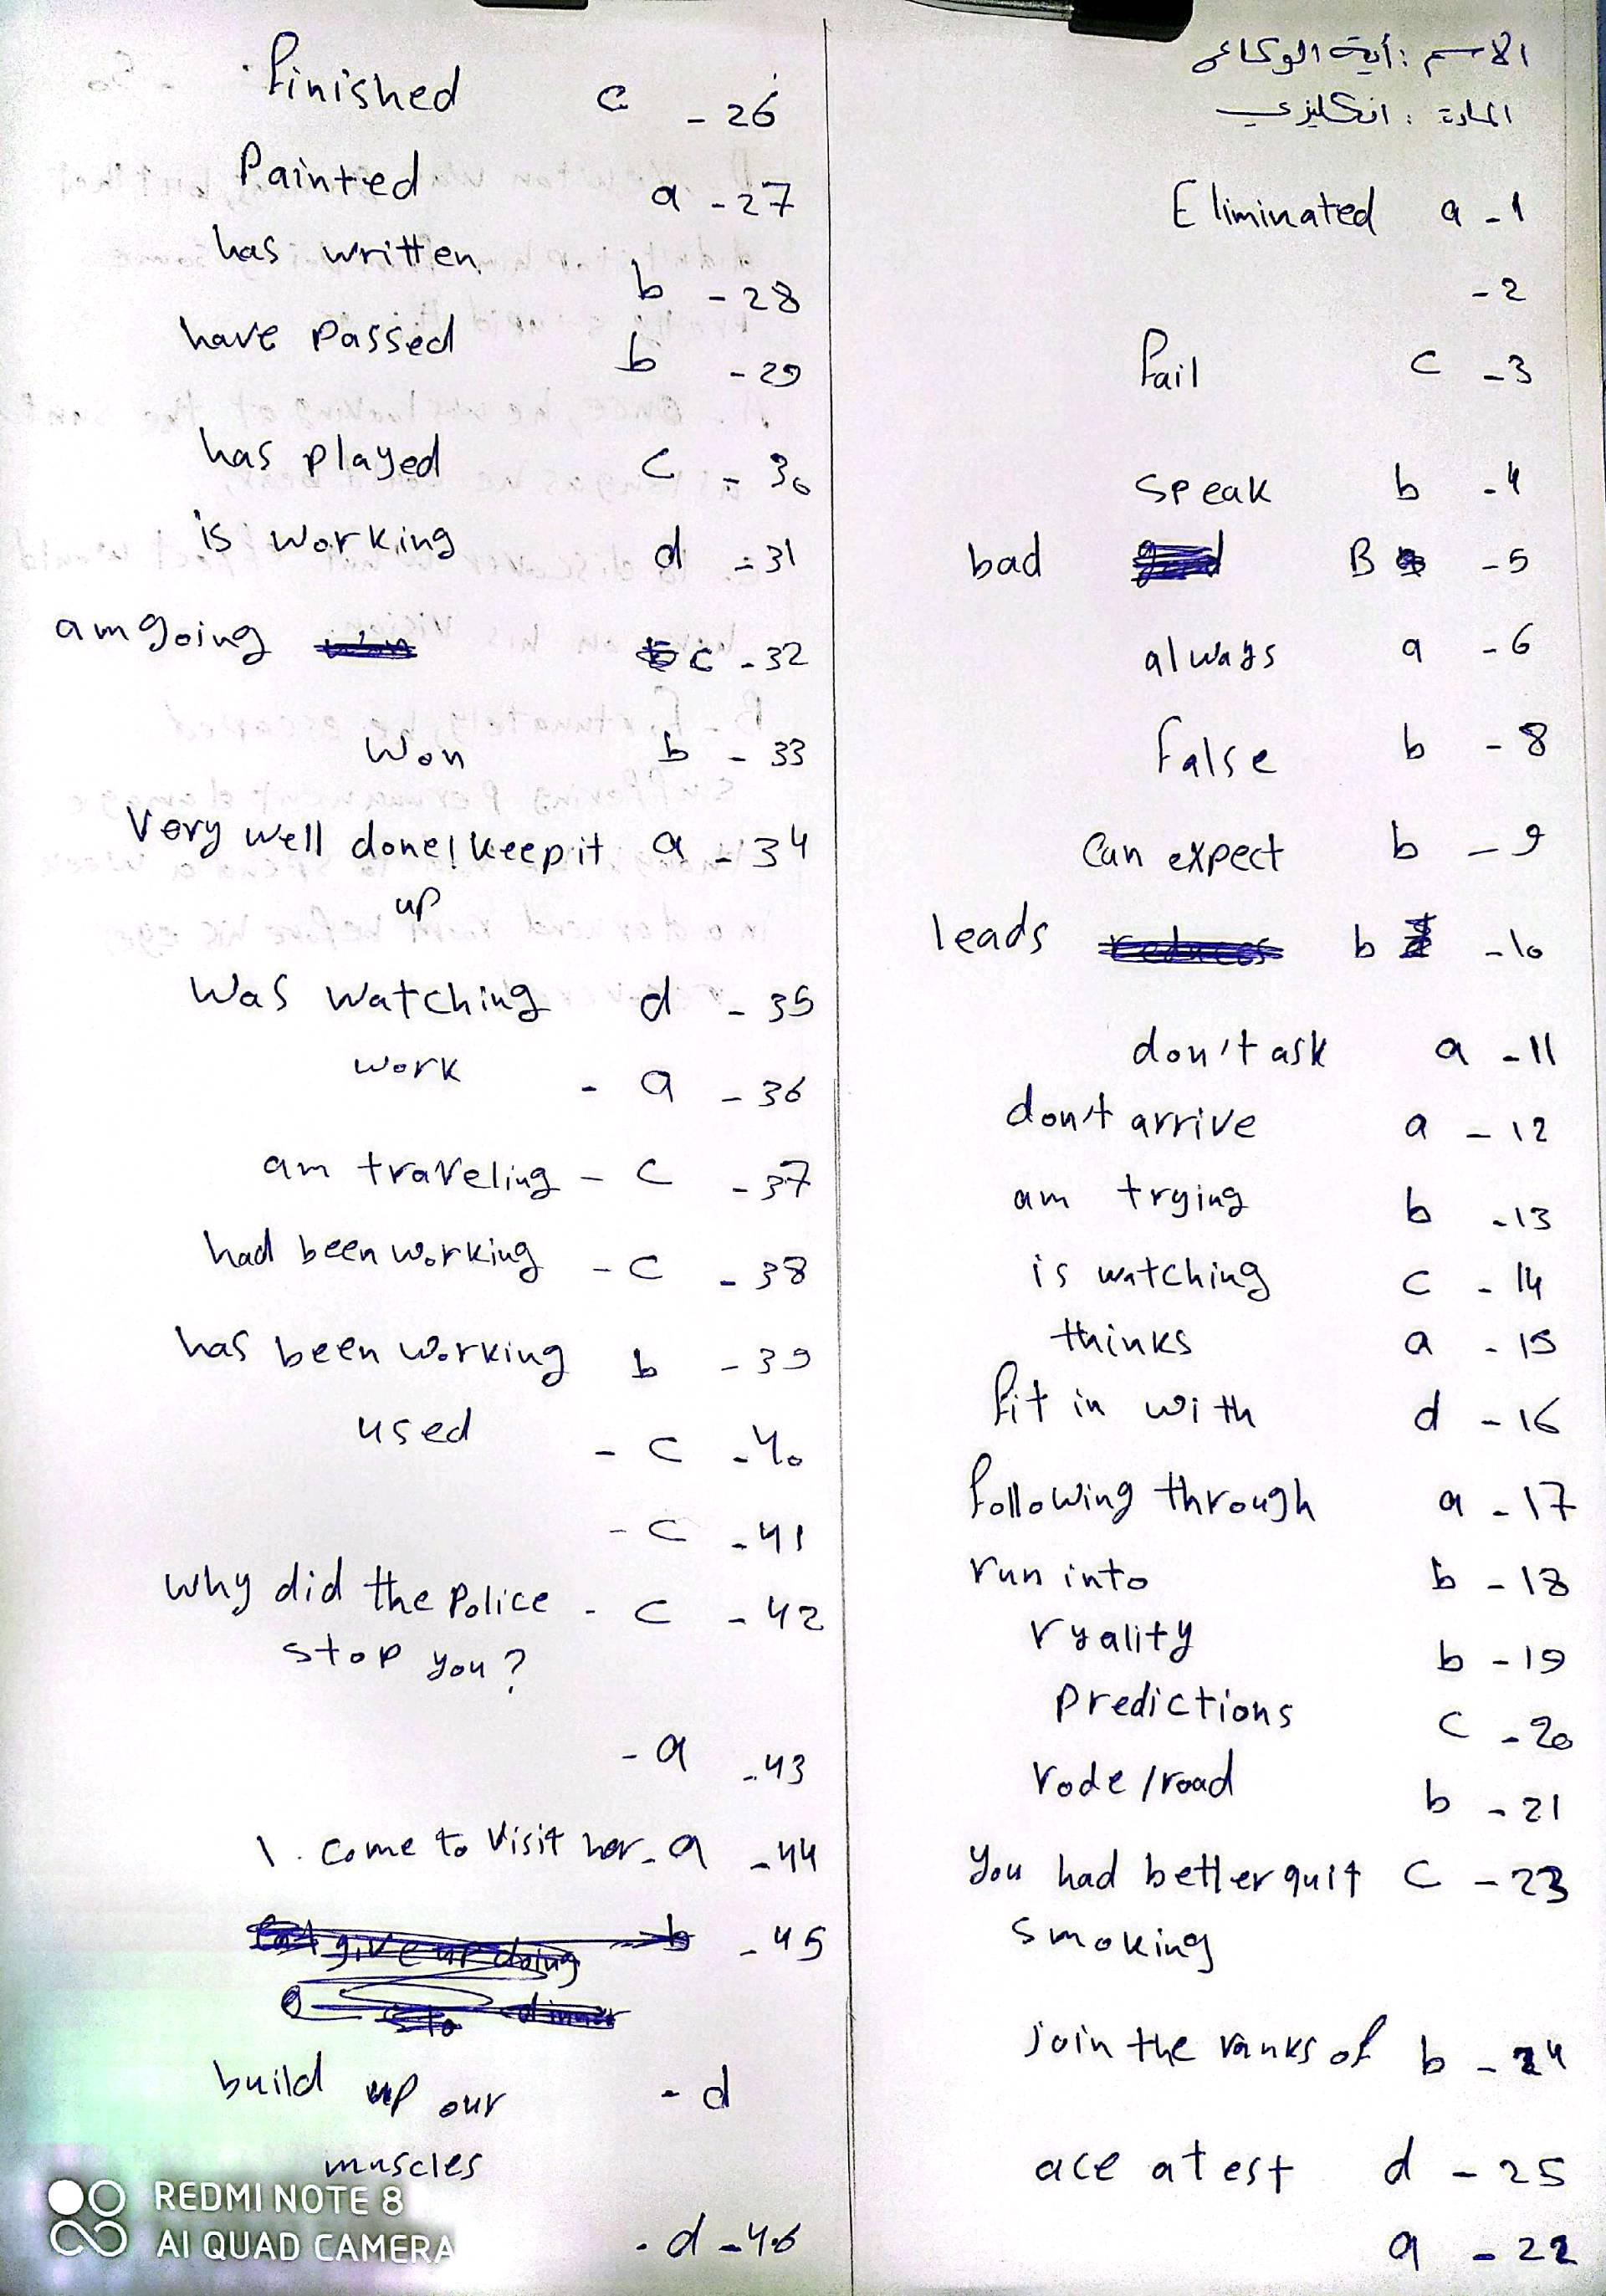 الاسم : آية الوكاعي
المادة : انكليزي
Eliminated a - 1
- 2
fail c - 3
speak b - 4
bad B - 5
always a - 6
false b - 8
Can expect b - 9
leads b - 10
don't ask a - 11
don't arrive a - 12
am trying b - 13
is watching c - 14
thinks a - 15
fit in with d - 16
following through a - 17
run into b - 18
ryality b - 19
predictions c - 20
rode/road b - 21
you had better quit c - 23
smoking
join the ranks of b - 24
ace a test d - 25
a - 22
finished c - 26
Painted a - 27
has written b - 28
have passed b - 29
has played c - 30
is working d - 31
am going c - 32
won b - 33
Very well done! keep it a - 34
up
was watching d - 35
work - a - 36
am traveling - c - 37
had been working - c - 38
has been working b - 39
used - c - 40
- c - 41
why did the police - c - 42
stop you?
- a - 43
1. come to visit her - a - 44
- 45
build up our - d
muscles
- d - 46
REDMI NOTE 8
AI QUAD CAMERA